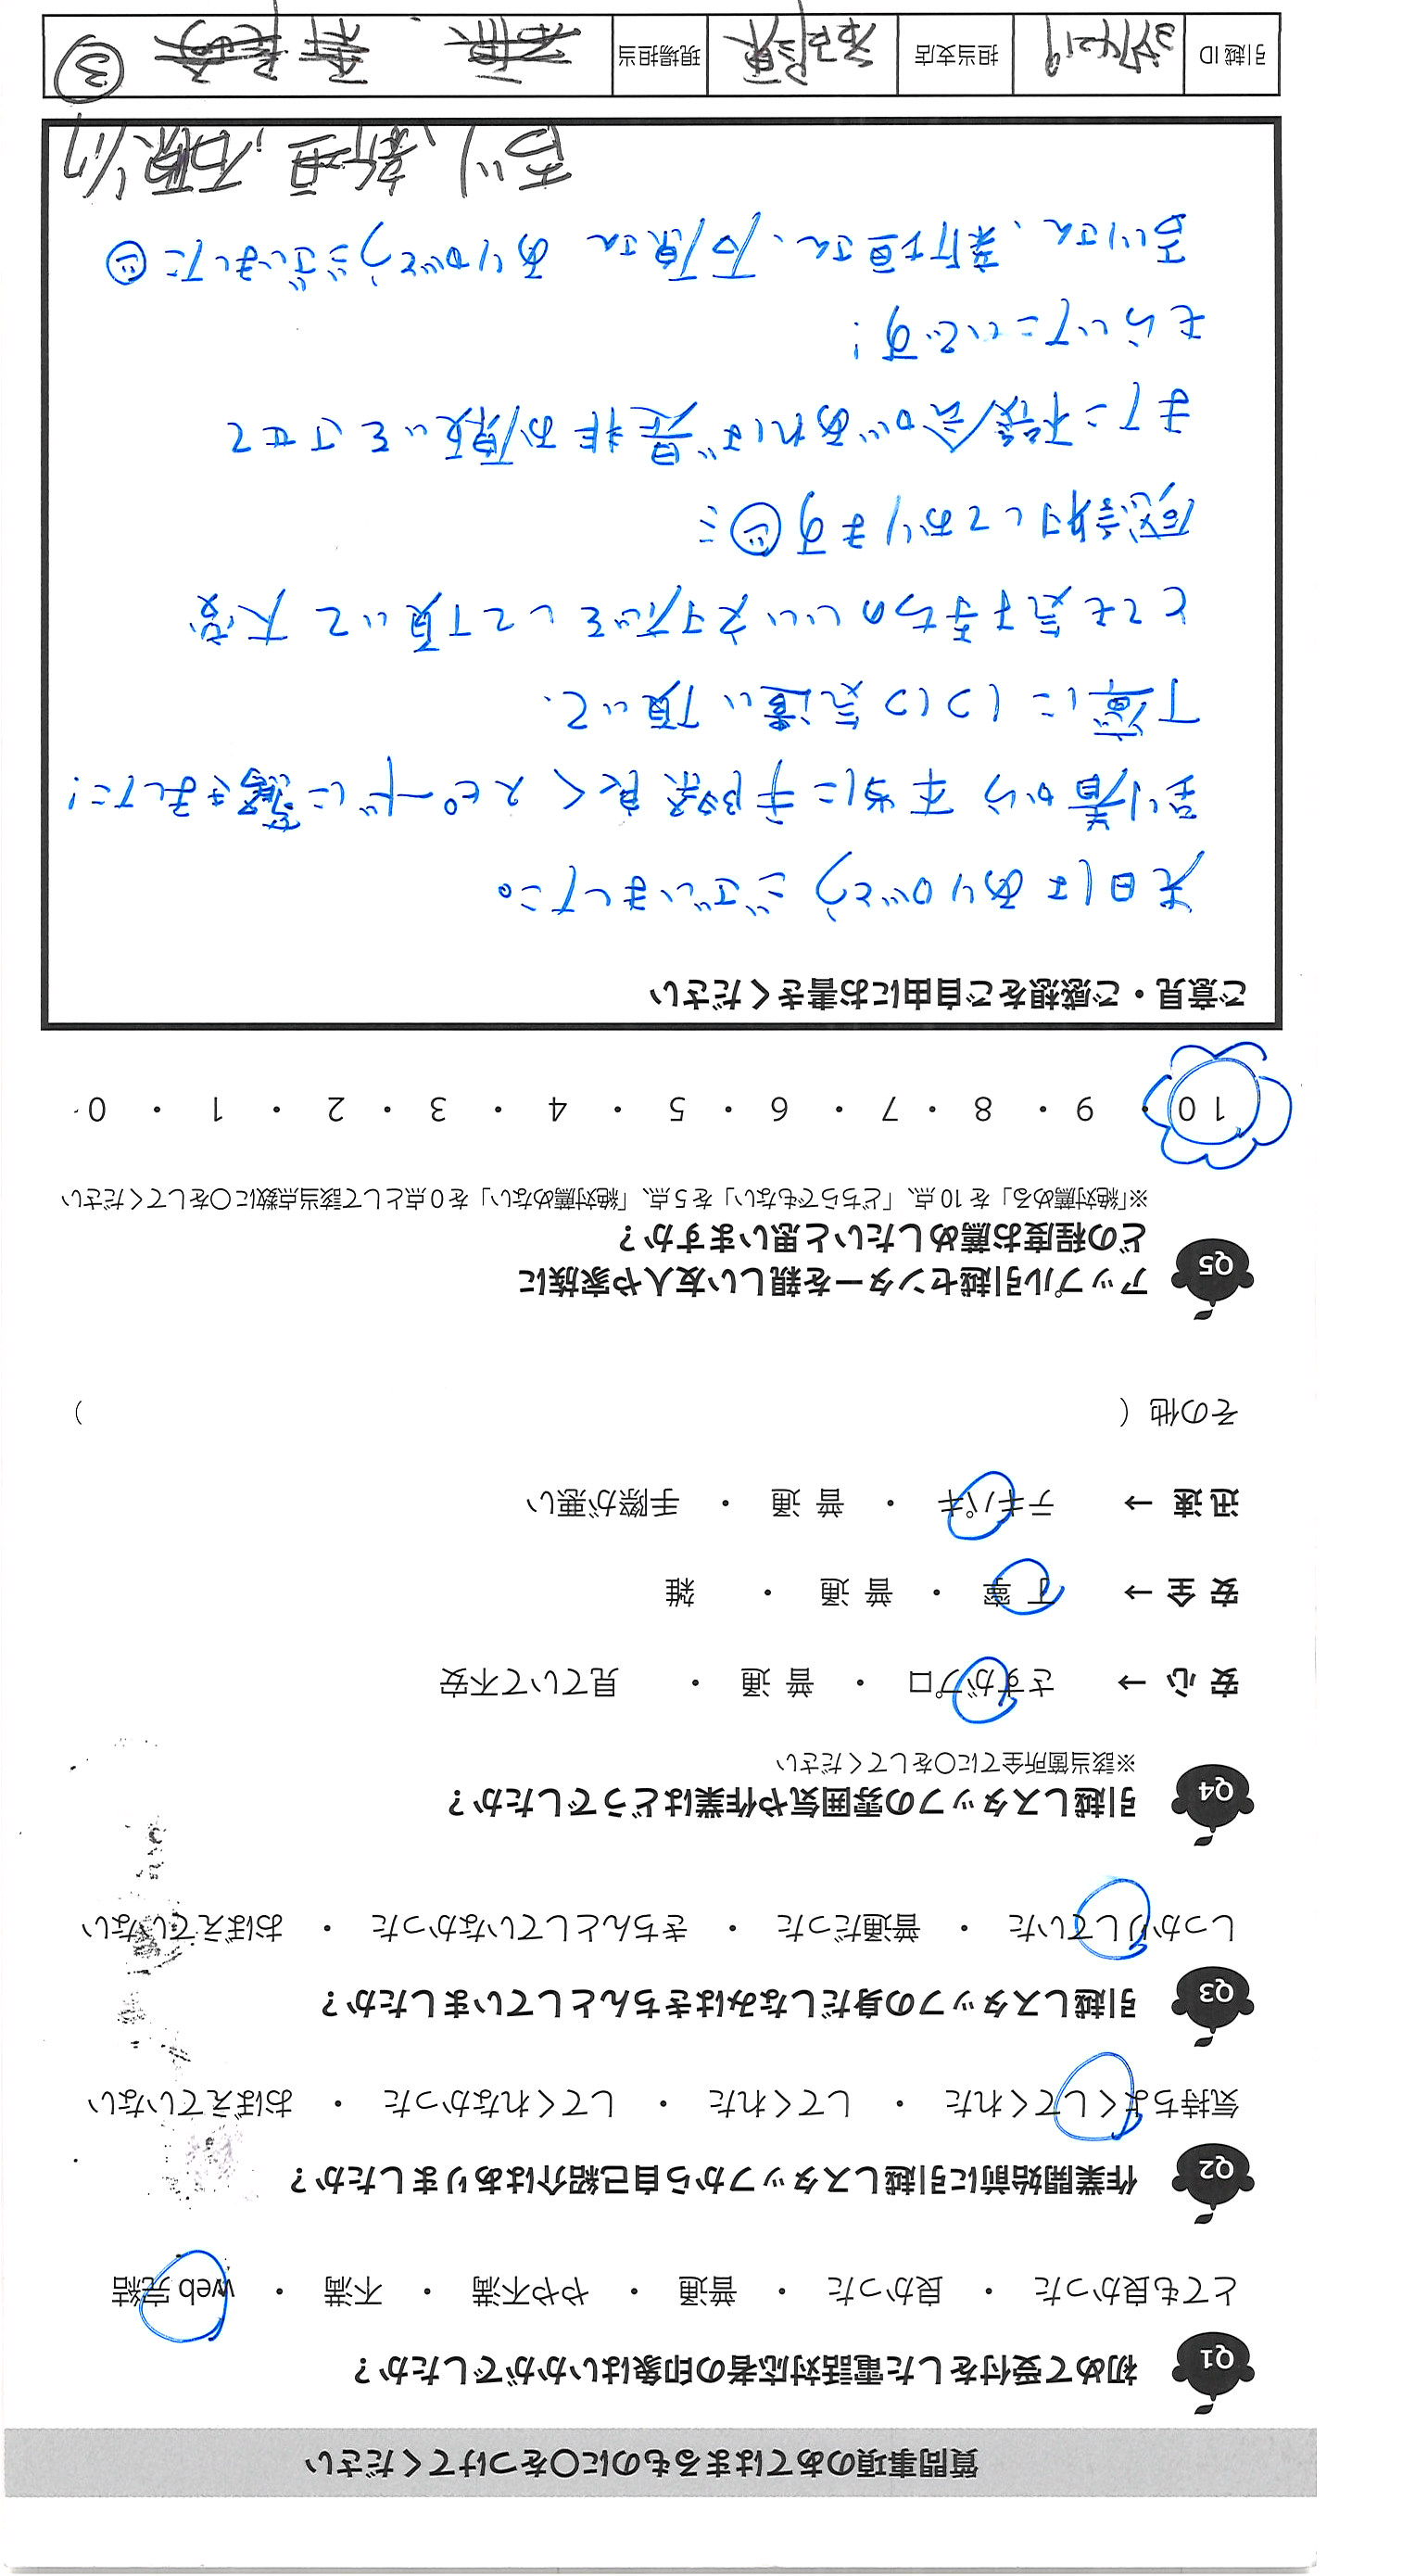 質問事項のあてはまるものに〇をつけてください
Q1 初めて受付をした電話対応者の印象はいかがでしたか？
とても良かった ・ 良かった ・ 普通 ・ やや不満 ・ 不満 ・ web 完結
Q2 作業開始前に引越しスタッフから自己紹介はありましたか？
気持ちよくしてくれた ・ してくれた ・ してくれなかった ・ おぼえていない
Q3 引越しスタッフの身だしなみはきちんとしていましたか？
しっかりしていた ・ 普通だった ・ きちんとしていなかった ・ おぼえていない
Q4 引越しスタッフの雰囲気や作業はどうでしたか？
※該当箇所全てに〇をしてください
安 心 → さすがプロ ・ 普 通 ・ 見ていて不安
安 全 → 丁 寧 ・ 普 通 ・ 雑
迅 速 → テキパキ ・ 普 通 ・ 手際が悪い
その他（ ）
Q5 アップル引越センターを親しい友人や家族に
どの程度お薦めしたいと思いますか？
※「絶対薦める」を 10 点、「どちらでもない」を 5 点、「絶対薦めない」を 0 点として該当点数に〇をしてください
10 ・ 9 ・ 8 ・ 7 ・ 6 ・ 5 ・ 4 ・ 3 ・ 2 ・ 1 ・ 0
ご意見・ご感想をご自由にお書きください
先日はありがとうございました。
到着から本当に手際良くスピードに驚きました!
丁寧にしつつ気遣い頂いて、
とても気持ちのいい対応をして頂いて大変
感謝しております
また機会があれば是非お願いをさせて
もらいたいです!
吉川さん、新垣さん、石原さん ありがとうございました
吉川、新垣、石原 1/17
引越 ID 担当支店 現場担当 ③